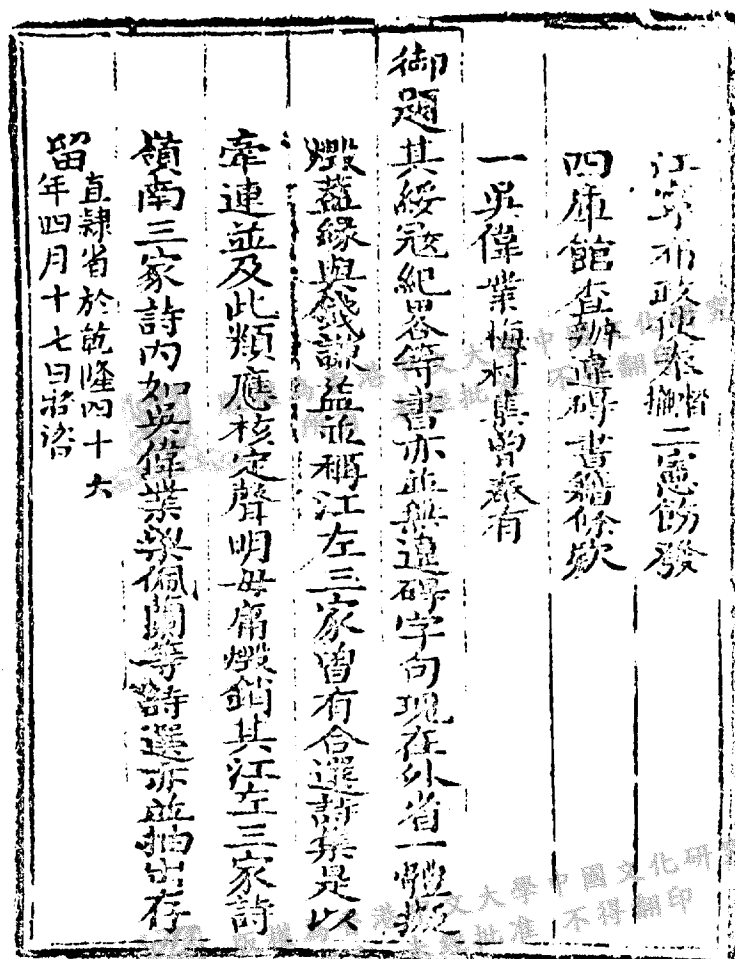 江寧布政使奉督撫二憲飭發
四庫館查辦違碍書籍條欵
一吳偉業梅村集曾奉有
御題其綏寇紀畧等書亦並無違碍字句現在外省一體擬
燬蓋緣與錢謙益並稱江左三家曾有合選詩集是以
牽連並及此類應核定聲明毋庸燬銷其江左三家詩
嶺南三家詩內如吳偉業梁佩蘭等詩選亦並抽出存
留直隸省於乾隆四十六
年四月十七日咨